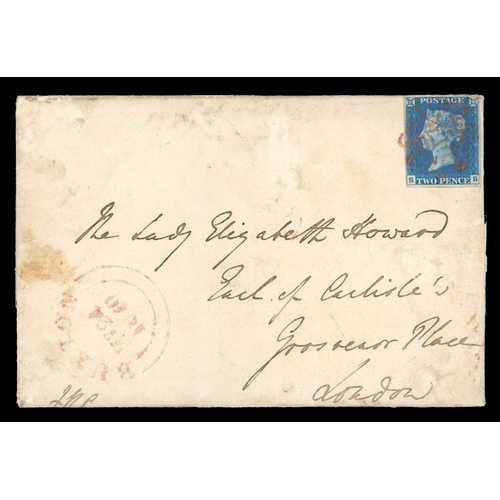 POSTAGE
S B
TWO PENCE
The Lady Elizabeth Howard
Earl of Carlisle's
Grosvenor Place
London
1840